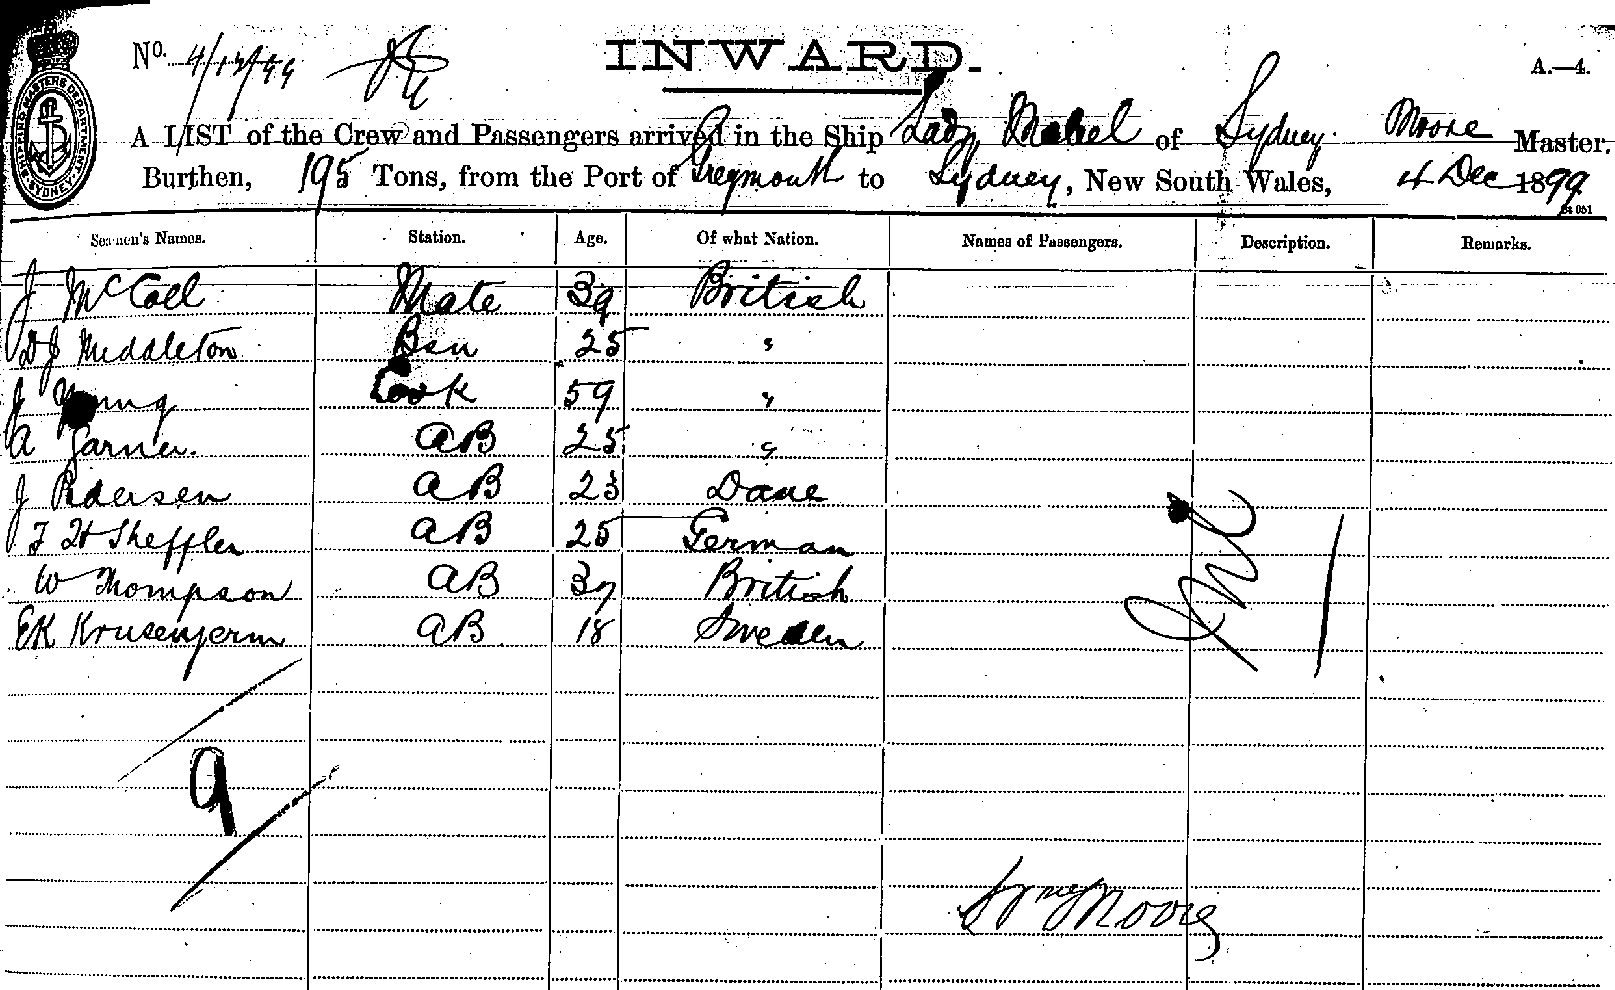 No. 4/12/99
INWARD.
A.—4.
A LIST of the Crew and Passengers arrived in the Ship Lady Mabel of Sydney. Moore Master.
Burthen, 195 Tons, from the Port of Greymouth to Sydney, New South Wales, 4 Dec 1899
Seamen's Names. Station. Age. Of what Nation. Names of Passengers. Description. Remarks.
J McColl Mate 39 British
D J Middleton Bsn 25 "
J Young Cook 59 "
A Garner. AB 25 "
J Pedersen AB 23 Dane
F H Sheffler AB 25 German
W Thompson AB 37 British
EK Krusenjerm AB 18 Sweden
Nil
9
Wm Moore